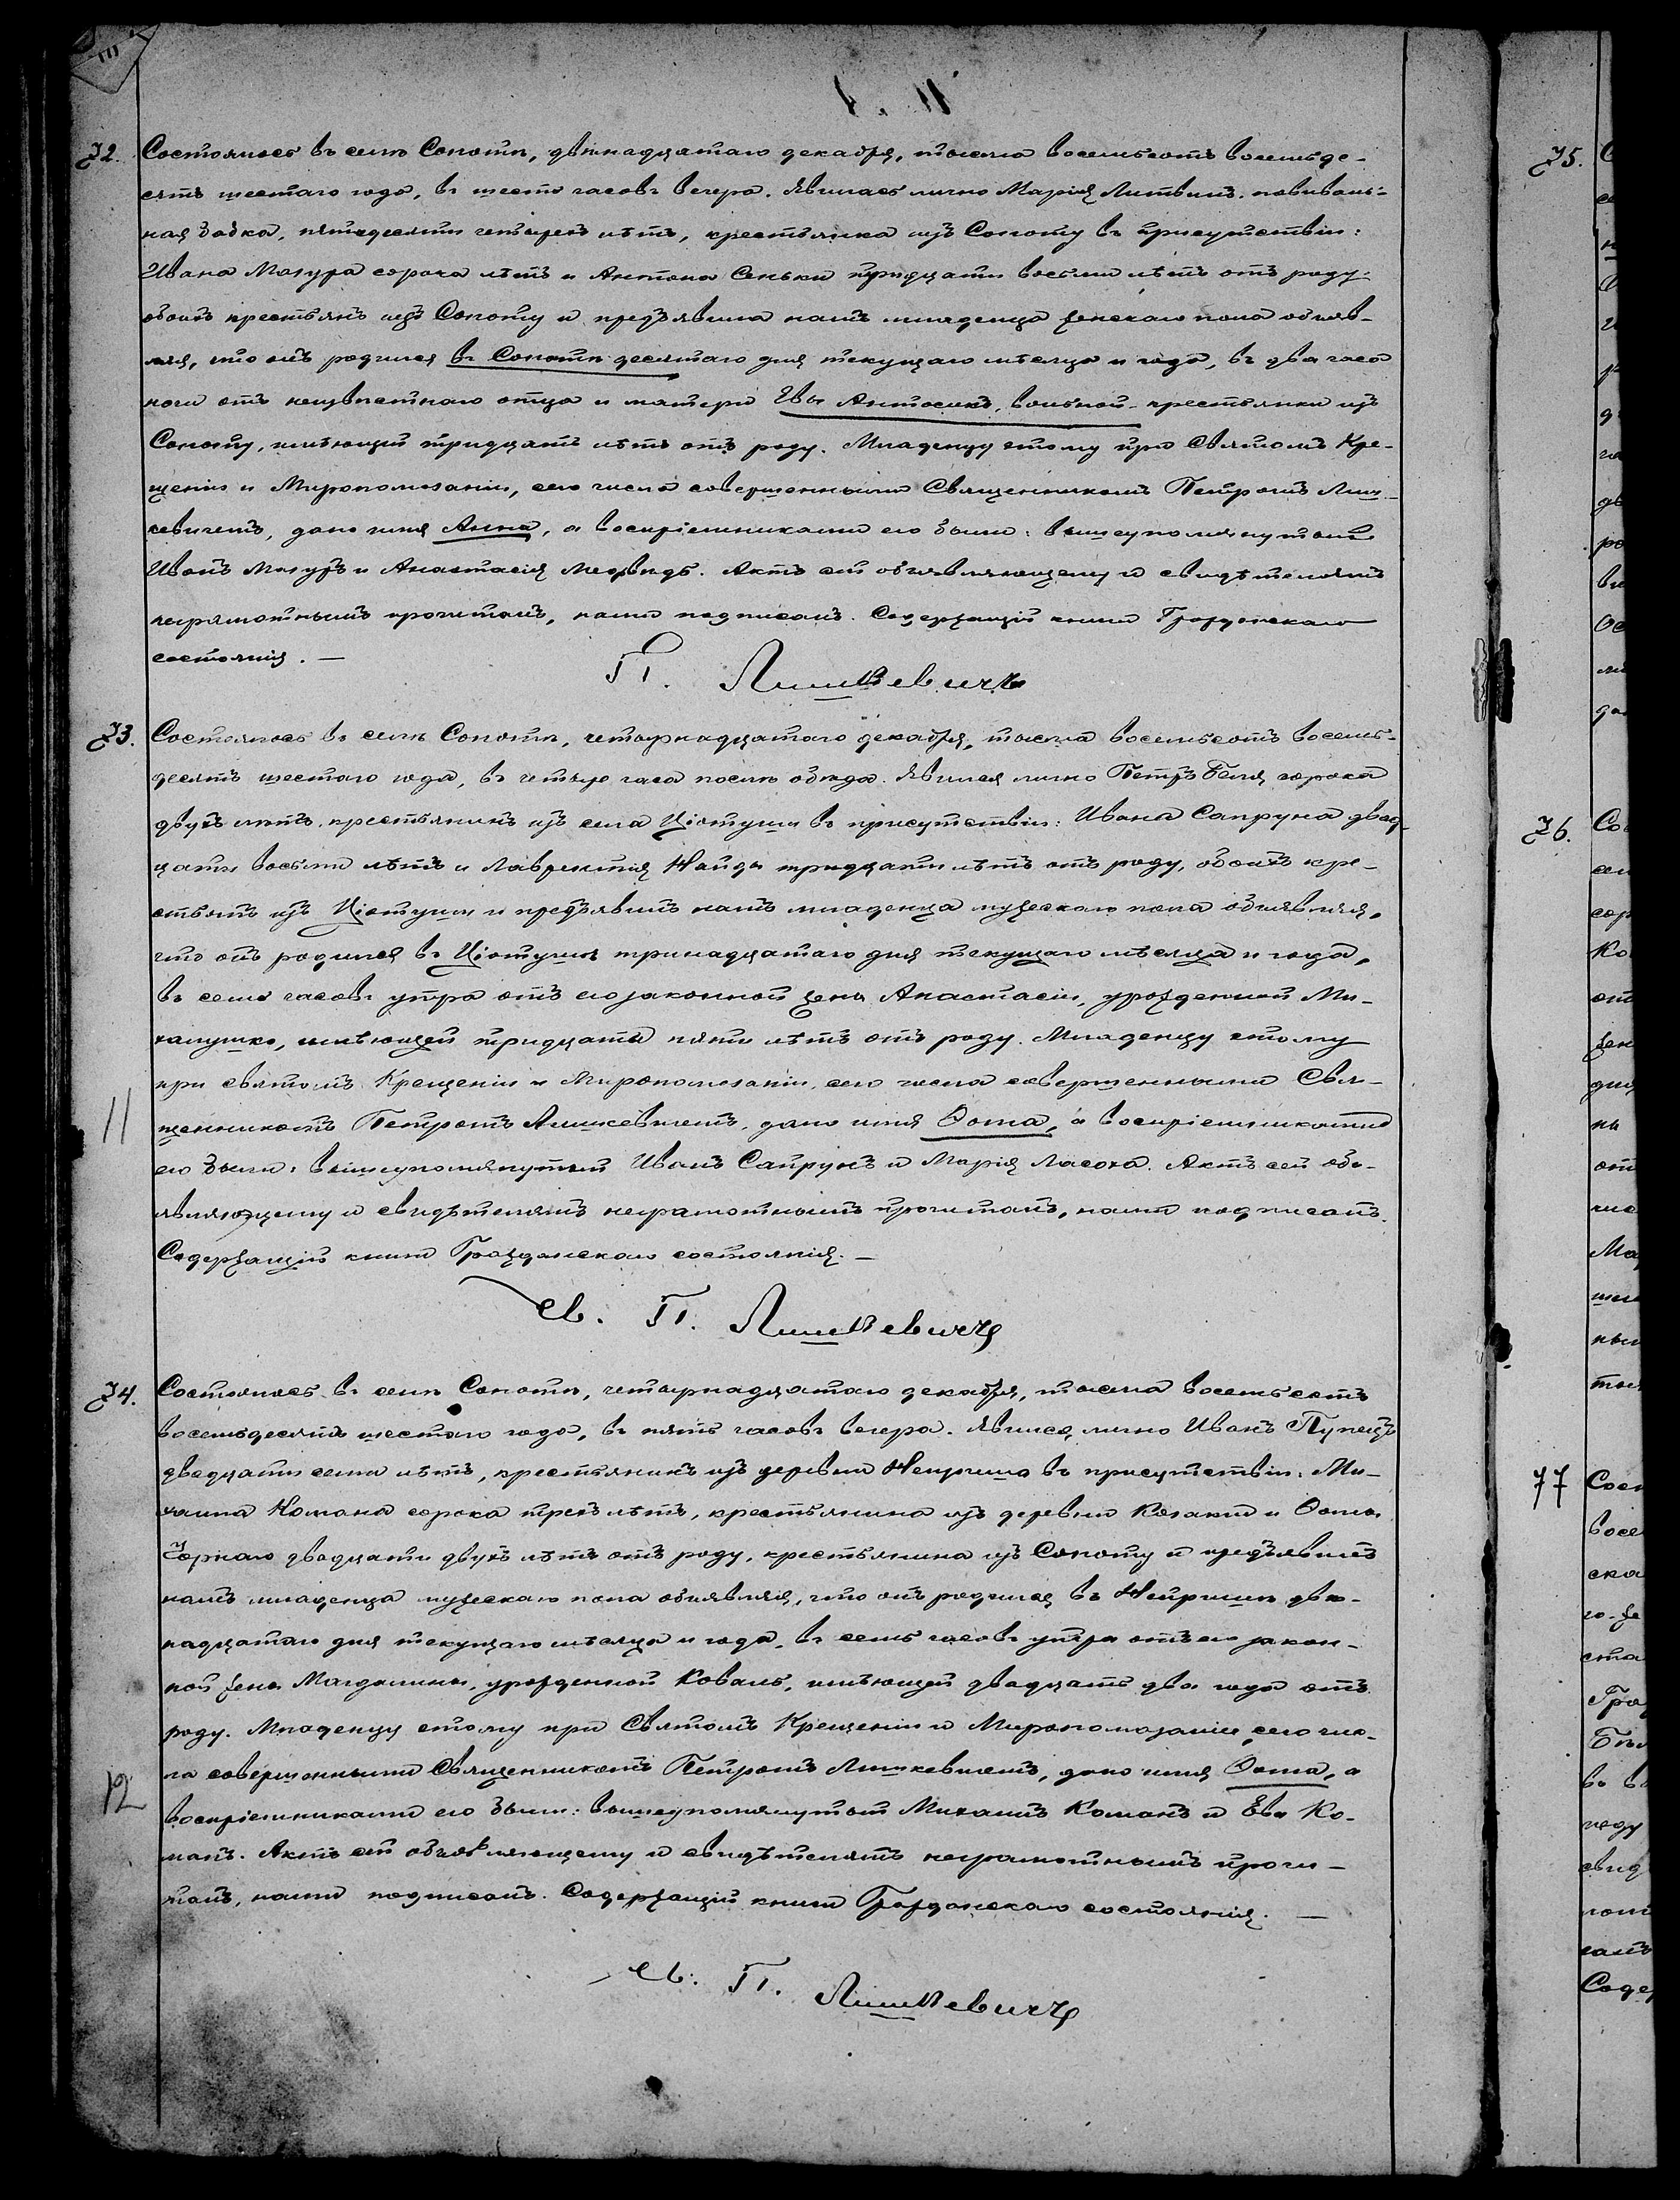 72. Состоялось въ селѣ Сопотѣ, двѣнадцатаго декабря, тысяча восемьсотъ восемьде-
сятъ шестаго года, въ шесть часовъ вечера. Явилась лично Марія Литвинъ, повиваль-
ная бабка, пятидесяти четырехъ лѣтъ, крестьянка изъ Сопоту въ присутствіи:
Ивана Мазура сорока лѣтъ и Антона Сеньки тридцати восьми лѣтъ отъ роду,
обоихъ крестьянъ изъ Сопоту и предъявила намъ младенца женскаго пола объяв-
ляя, что онъ родился въ Сопотѣ десятаго дня текущаго мѣсяца и года, въ два часа
ночи отъ неизвѣстнаго отца и матери Евы Антосюкъ, вольной крестьянки изъ
Сопоту, имѣющей тридцать лѣтъ отъ роду. Младенцу этому при Святомъ Кре-
щеніи и Миропомазаніи, сего числа совершенными Священникомъ Петромъ Лиш-
кевичемъ, дано имя Анна, а воспріемниками его были: вышеупомянутый
Иванъ Мазуръ и Анастасія Медвѣдь. Актъ сей объявляющему и свидѣтелямъ
неграмотнымъ прочитанъ, нами подписанъ. Содержащій книги Гражданскаго
состоянія. —
П. Лишкевичъ
73. Состоялось въ селѣ Сопотѣ, четырнадцатаго декабря, тысяча восемьсотъ восемь-
десятъ шестаго года, въ четыре часа послѣ обѣда. Явился лично Петръ Беля сорока
двухъ лѣтъ, крестьянинъ изъ села Ціотуши въ присутствіи: Ивана Сапруна двад-
цати восьми лѣтъ и Лаврентія Найды тридцати лѣтъ отъ роду, обоихъ кре-
стьянъ изъ Ціотуши и предъявилъ намъ младенца мужескаго пола объявляя,
что онъ родился въ Ціотушѣ тринадцатаго дня текущаго мѣсяца и года,
въ семь часовъ утра отъ его законной жены Анастасіи, урожденной Ми-
халушко, имѣющей тридцать пять лѣтъ отъ роду. Младенцу этому
при святомъ Крещеніи и Миропомазаніи, сего числа совершенными Свя-
11 щенникомъ Петромъ Лишкевичемъ, дано имя Ѳома, а воспріемниками
его были: вышеупомянутый Иванъ Сапрунъ и Марія Ласоха. Актъ сей объ-
являющему и свидѣтелямъ неграмотнымъ прочитанъ, нами подписанъ.
Содержащій книги Гражданскаго состоянія. —
Св. П. Лишкевичъ
74. Состоялось въ селѣ Сопотѣ, четырнадцатаго декабря, тысяча восемьсотъ
восемьдесятъ шестаго года, въ пять часовъ вечера. Явился лично Иванъ Пупецъ
двадцати семи лѣтъ, крестьянинъ изъ деревни Неприша въ присутствіи: Ми-
хаила Комана сорока трехъ лѣтъ, крестьянина изъ деревни Козаки и Ѳомы
Чорнаго двадцати двухъ лѣтъ отъ роду, крестьянина изъ Сопоту и предъявилъ
намъ младенца мужескаго пола объявляя, что онъ родился въ Непришѣ двѣ-
надцатаго дня текущаго мѣсяца и года, въ семь часовъ утра отъ его закон-
ной жены Магдалины, урожденной Коваль, имѣющей двадцать два года отъ
роду. Младенцу этому при Святомъ Крещеніи и Миропомазаніи, сего чис-
ла совершенными Священникомъ Петромъ Лишкевичемъ, дано имя Ѳома, а
12 воспріемниками его были: вышеупомянутый Михаилъ Команъ и Ева Ко-
манъ. Актъ сей объявляющему и свидѣтелямъ неграмотнымъ прочи-
танъ, нами подписанъ. Содержащій книги Гражданскаго состоянія. —
Св. П. Лишкевичъ
75.
76.
77